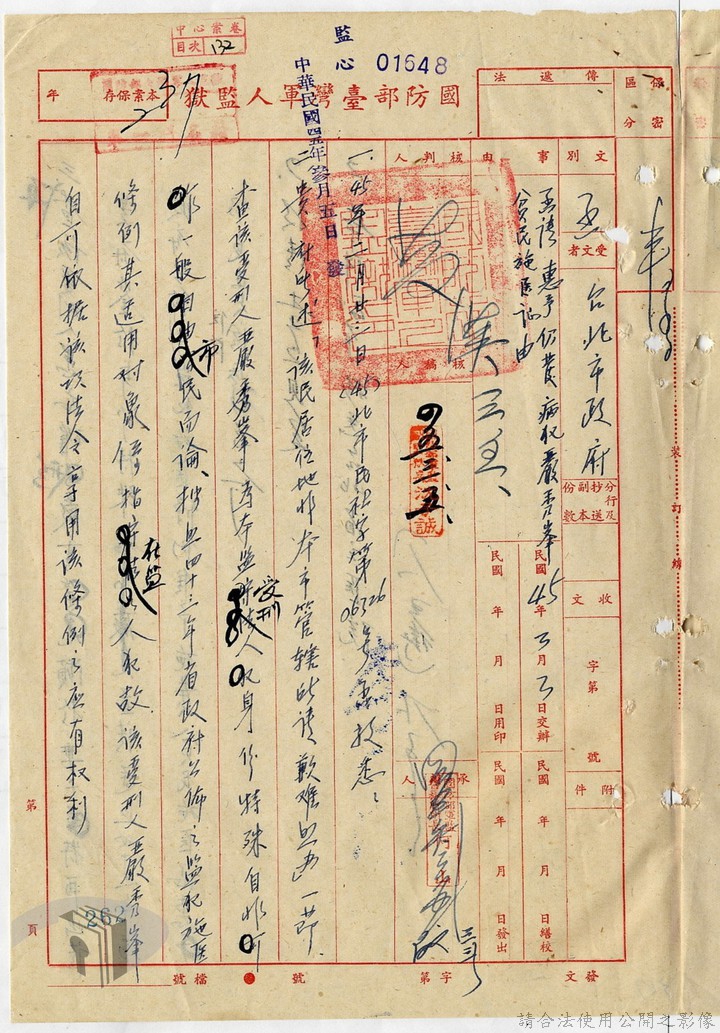 中心業卷
目次 132
監心 01648
中華民國四五年參月五日 發
國防部臺灣軍人監獄
本案保存 年
傳遞法
保密區分
文別
函
受文者
台北市政府
分行及抄送副本份數
事由
函請惠予仍貴病犯嚴秀峯
貧民施医
核判人
核稿人
四五、三、五、
收文
字第 號
附件
民國45年3月3日交辦
民國 年 月 日繕校
民國 年 月 日用印
民國 年 月 日發出
發文 字第 號
承辦人
裝訂線
一、45年二月廿三日(45)北市民社字第06326號
悉、
二、貴府所述、該民居住地非本市管轄所請歉难照办一節、
查該受刑人嚴秀峯 本監受刑人犯身份特殊自非可
作一般 市民而論、按照四十三年省政府公佈之監犯施医
條例其适用对象 係指 在監人犯故該受刑人嚴秀峯
自可依据該項法令享用該條例之应有权利
第 頁
檔號
262
請合法使用公開之影像